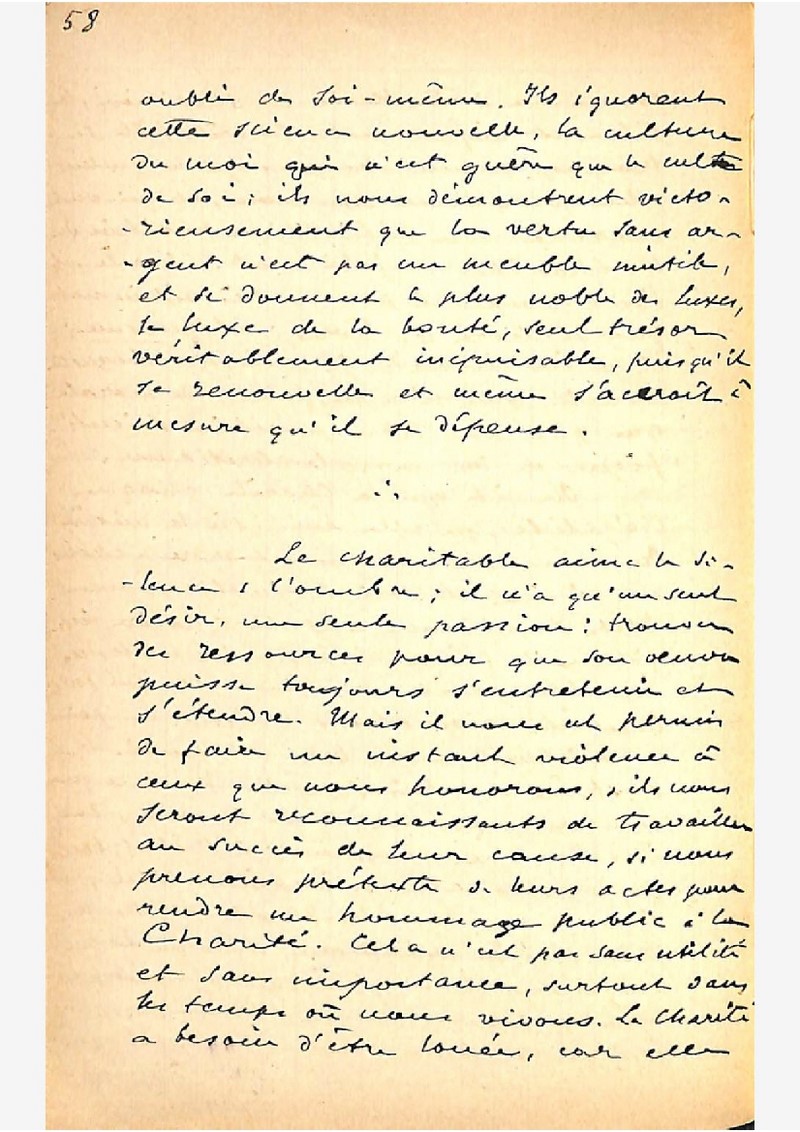 58
oubli de soi-même. Ils ignorent
cette science nouvelle, la culture
du moi qui n'est guère que le culte
de soi ; ils nous démontrent victo-
-rieusement que la vertu sans ar-
-gent n'est pas un meuble inutile,
et se donnent le plus noble des luxes,
le luxe de la bonté, seul trésor
véritablement inépuisable, puisqu'il
se renouvelle et même s'accroît à
mesure qu'il se dépense.
∴
Le charitable aime le si-
-lence & l'ombre ; il n'a qu'un seul
désir, une seule passion : trouver
des ressources pour que son œuvre
puisse toujours s'entretenir et
s'étendre. Mais il nous est permis
de faire un instant violence à
ceux que nous honorons, & ils nous
seront reconnaissants de travailler
au succès de leur cause, si nous
prenons prétexte de leurs actes pour
rendre un hommage public à la
Charité. Cela n'est pas sans utilité
et sans importance, surtout dans
les temps où nous vivons. La Charité
a besoin d'être louée, car elle